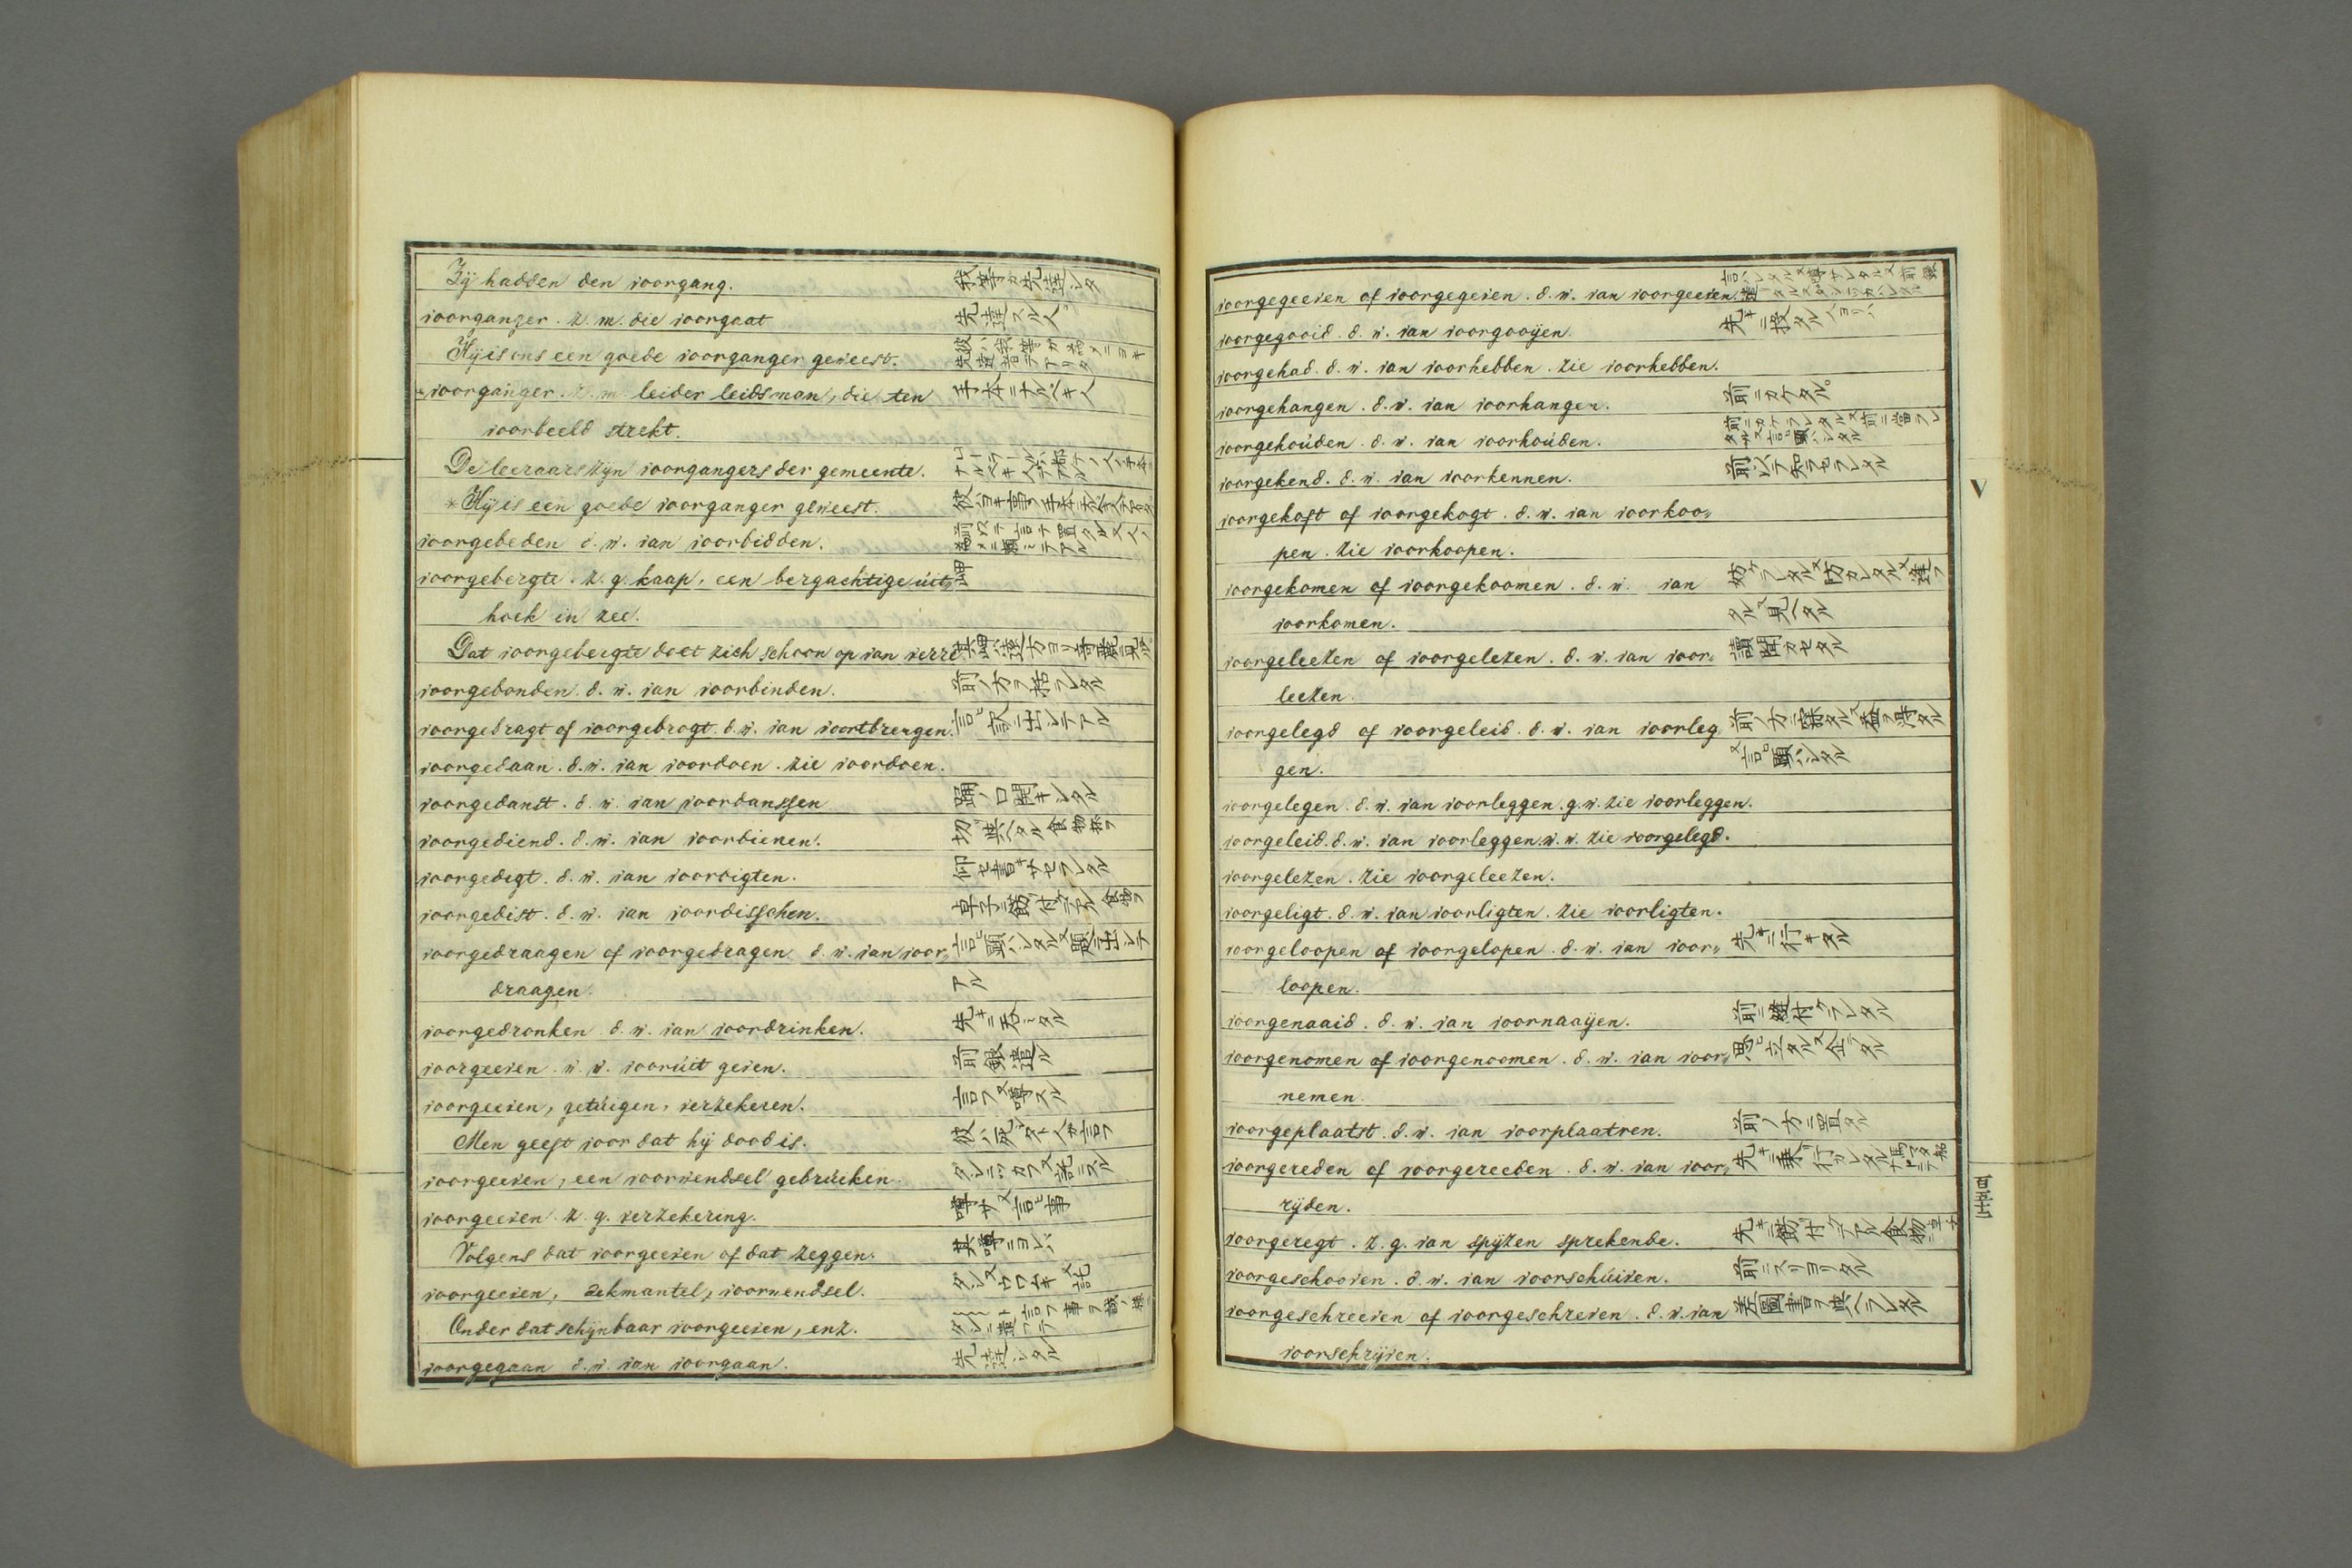 Zÿ hadden den voorgang. 我等カ先達シタ
voorganger. z. m. die voorgaat 先達スル人
Hÿ is ons een goede voorganger geweest.
*voorganger. z. m. leider leidsman, die ten 手本ニナルヘキ人
voorbeeld strekt.
De leeraars zÿn voorgangers der gemeente.
*Hÿ is een goede voorganger geweest.
voorgebeden d. w. van voorbidden.
voorgebergte. z. g. kaap, een bergachtige uit„ 岬
hoek in zee.
Dat voorgebergte doet zich schoon op van verre.
voorgebonden. d. w. van voorbinden. 前ノ方ヲ括ラレタル
voorgebragt of voorgebrogt. d. w. van voortbrengen.
voorgedaan. d. w. van voordoen. zie voordoen.
voorgedanst. d. w. van voordanssen 踊ノ口開キシタル
voorgediend. d. w. van voordienen. 切リ與ヘタル食物抔ヲ
voorgedigt. d. w. van voordigten. 仰セ書キサセラレタル
voorgedist. d. w. van voordisschen.
voorgedraagen of voorgedragen d. w. van voor„ 言ヒ顕ハシタル又題ニ出シテ
draagen. アル
voorgedronken d. w. van voordrinken. 先キニ呑ミタル
voorgeeven. w. w. vooruit geven. 前銀遣ル
voorgeeven, getuigen, verzekeren. 言フ又噂スル
Men geeft voor dat hÿ dood is. 彼ハ死シタト人カ言フ
voorgeeven, een voorwendsel gebruiken
voorgeeven. z. g. verzekering. 噂サ又言ヒ事
Volgens dat voorgeeven of dat zeggen. 其噂ニヨレハ
voorgeeven, dekmantel, voorwendsel.
Onder dat schÿnbaar voorgeeven, enz.
voorgegaan d. w. van voorgaan. 先達シタル
voorgegeeven of voorgegeven. d. w. van voorgeeven.
voorgegooid. d. w. van voorgooÿen. 先キニ投タル
voorgehad. d. w. van voorhebben. zie voorhebben.
voorgehangen. d. w. van voorhangen. 前ニカケタル。
voorgehouden. d. w. van voorhouden.
voorgekend. d. w. van voorkennen. 前以テ知ラセラレタル
voorgekoft of voorgekogt. d. w. van voorkoo„
pen. zie voorkoopen.
voorgekomen of voorgekoomen. d. w. van
voorkomen. タル又見ヘタル
voorgeleezen of voorgelezen. d. w. van voor„ 讀聞カセタル
leezen.
voorgelegd of voorgeleid. d. w. van voorleg
gen. 又言ヒ顕ハシタル
voorgelegen. d. w. van voorleggen. g. w. zie voorleggen.
voorgeleid. d. w. van voorleggen. w. w. zie voorgelegd.
voorgelezen. zie voorgeleezen.
voorgeligt. d. w. van voorligten. zie voorligten.
voorgeloopen of voorgelopen. d. w. van voor„ 先キニ行キタル
loopen.
voorgenaaid. d. w. van voornaaÿen. 前ニ縫付ケラレタル
voorgenomen of voorgenoomen. d. w. van voor„ 思ヒ立タル又企タル
nemen.
voorgeplaatst. d. w. van voorplaatren. 前ノ方ニ置タル
voorgereden of voorgereeden. d. w. van voor„
rÿden.
voorgeregt. z. g. van spÿzen sprekende.
voorgeschooven. d. w. van voorschuiven. 前ニスリヨリタル
voorgeschreeven of voorgeschreven. d. w. van
voorschrÿven.
V
百五十七